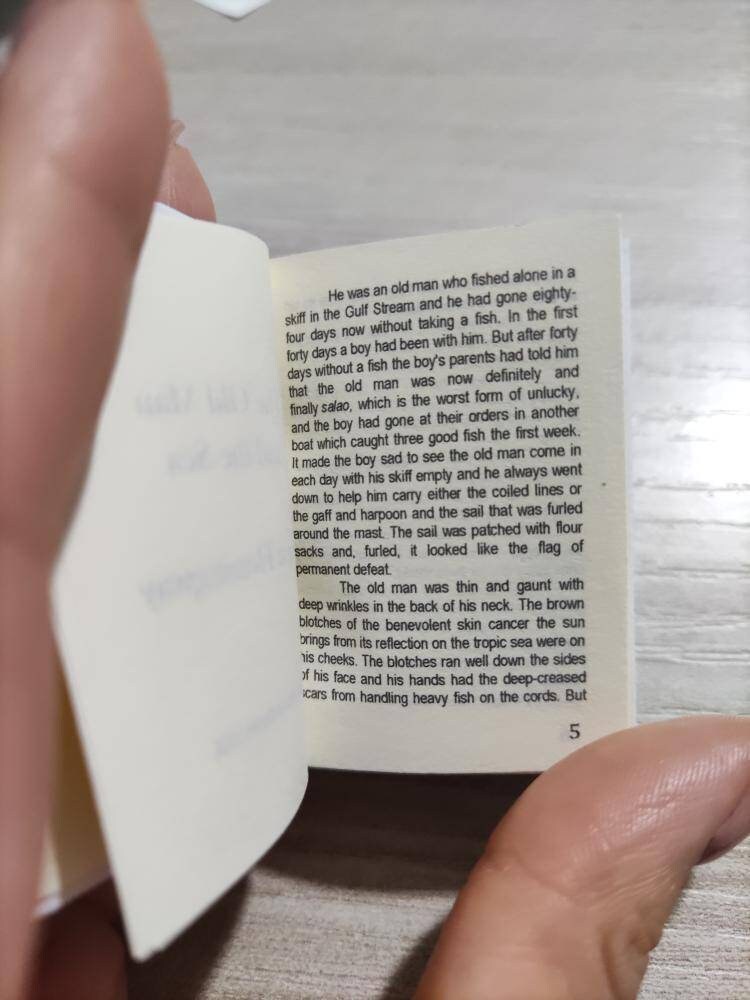 He was an old man who fished alone in a
skiff in the Gulf Stream and he had gone eighty-
four days now without taking a fish. In the first
forty days a boy had been with him. But after forty
days without a fish the boy's parents had told him
that the old man was now definitely and
finally salao, which is the worst form of unlucky,
and the boy had gone at their orders in another
boat which caught three good fish the first week.
It made the boy sad to see the old man come in
each day with his skiff empty and he always went
down to help him carry either the coiled lines or
the gaff and harpoon and the sail that was furled
around the mast. The sail was patched with flour
sacks and, furled, it looked like the flag of
permanent defeat.
The old man was thin and gaunt with
deep wrinkles in the back of his neck. The brown
blotches of the benevolent skin cancer the sun
brings from its reflection on the tropic sea were on
his cheeks. The blotches ran well down the sides
of his face and his hands had the deep-creased
scars from handling heavy fish on the cords. But
5